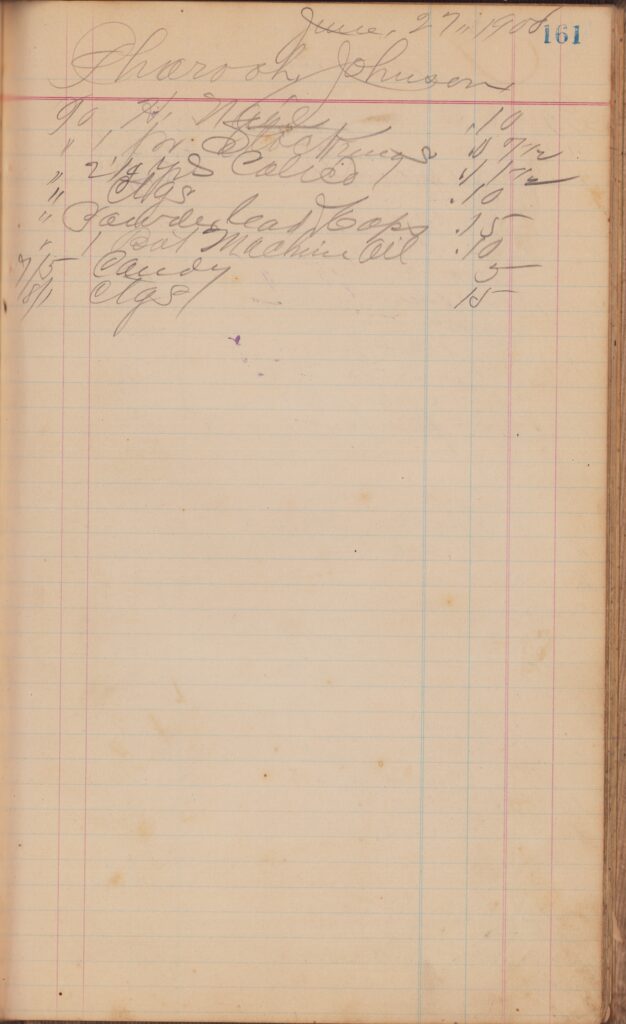 June, 27, 1906 161
Pharooh Johnson
Nails .10
" 1 pr. Stockings
" 2 1/2 yds Calico
" Ctgs .10
" Powder lead & Caps .15
" 1 Bot Machine Oil .10
7/5 Candy 5
8/1 Ctgs 15